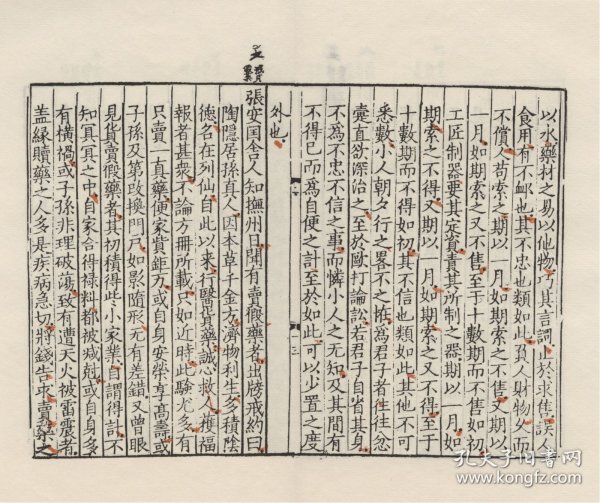 以水藥材之易以他物巧其言詞止於求售誤人
食用有不卹也其不忠也類如此負人財物久而
不償人苟索之期以一月如期索之不售又期以
一月如期索之又不售至于十數期而不售如初
工匠制器要其定資責其所制之器期以一月如
期索之不得又期以一月如期索之又不得至于
十數期而不得如初其不信也類如此其他不可
悉數小人朝夕行之畧不之恠為君子者往往忿
懥直欲深治之至於毆打論訟若君子自省其身
不為不忠不信之事而憐小人之无知及其間有
不得已而為自便之計至於如此可以少置之度
外也
張安国舍人知撫州日聞有賣假藥者出牓戒約曰
陶隐居孫真人因本草千金方濟物利生多積陰
德名在列仙自此以来行醫貨藥誠心救人獲福
報者甚衆不論方冊所載只如近時此驗尤多有
只賣一真藥便家貲鉅万或自身安榮享髙壽或
子孫及第改換門戶如影隨形无有差錯又曽眼
見貨賣假藥者其初積得些小家業自謂得計不
知冥冥之中自家合得禄料都被减剋或自身多
有横禍或子孫非理破蕩致有遭天火被雷震者
盖緣贖藥之人多是疾病急切將錢告求賣藥之
孔夫子旧书网
www.kongfz.com